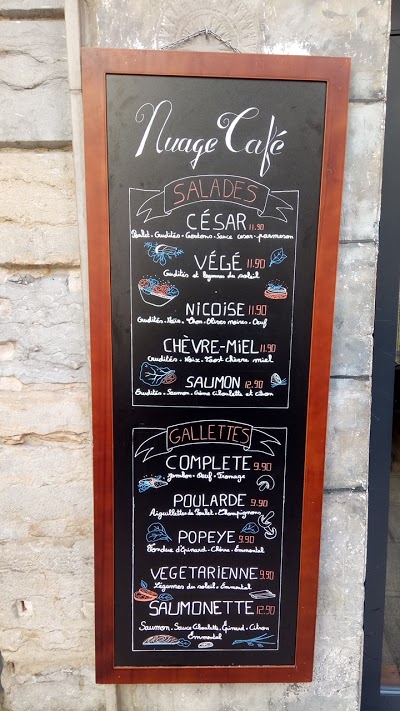 Nuage Café
SALADES
CÉSAR 11.90
Poulet - Crudités - Croutons - Sauce cesar - parmesan
VÉGÉ 11.90
Crudités et légumes du soleil
NICOISE 11.90
Crudités - Noix - Thon - Olives noires - Oeuf
CHÈVRE-MIEL 11.90
Crudités - Noix - Toast chèvre miel
SAUMON 12.90
Crudités - Saumon - Crème ciboulette et citron
GALLETTES
COMPLETE 9.90
Jambon - Oeuf - Fromage
POULARDE 9.90
Aiguillettes de Poulet - Champignons
POPEYE 9.90
Fondue d'épinard - Chèvre - Emmental
VEGETARIENNE 9.90
Légumes du soleil - Emmental
SAUMONETTE 12.90
Saumon - Sauce Ciboulette - Épinard - Citron
Emmental